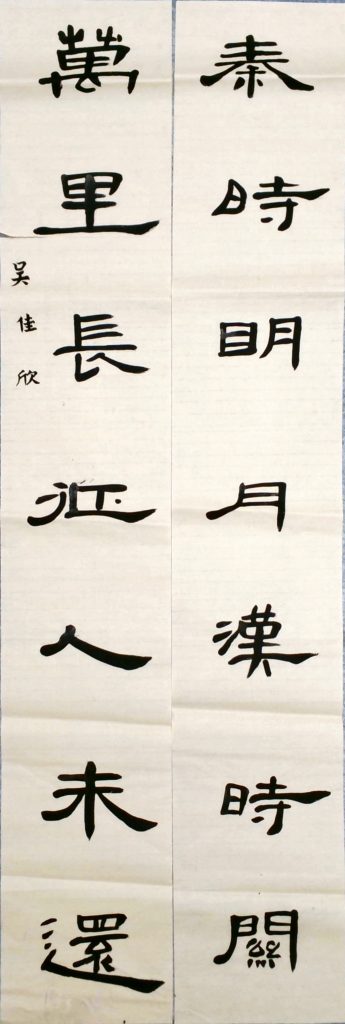 秦時眀月漢時關
萬里長征人未還
吴佳欣